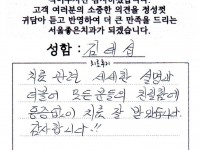 고객 여러분의 소중한 의견을 정성껏
귀담아 듣고 반영하여 더 큰 만족을 드리는
서울좋은치과가 되겠습니다.
성함 : 김
치료 관련 세세한 설명과
더불어 모든 분들의 친절함에
통증없이 치료 잘 받았습니다.
감사합니다!!